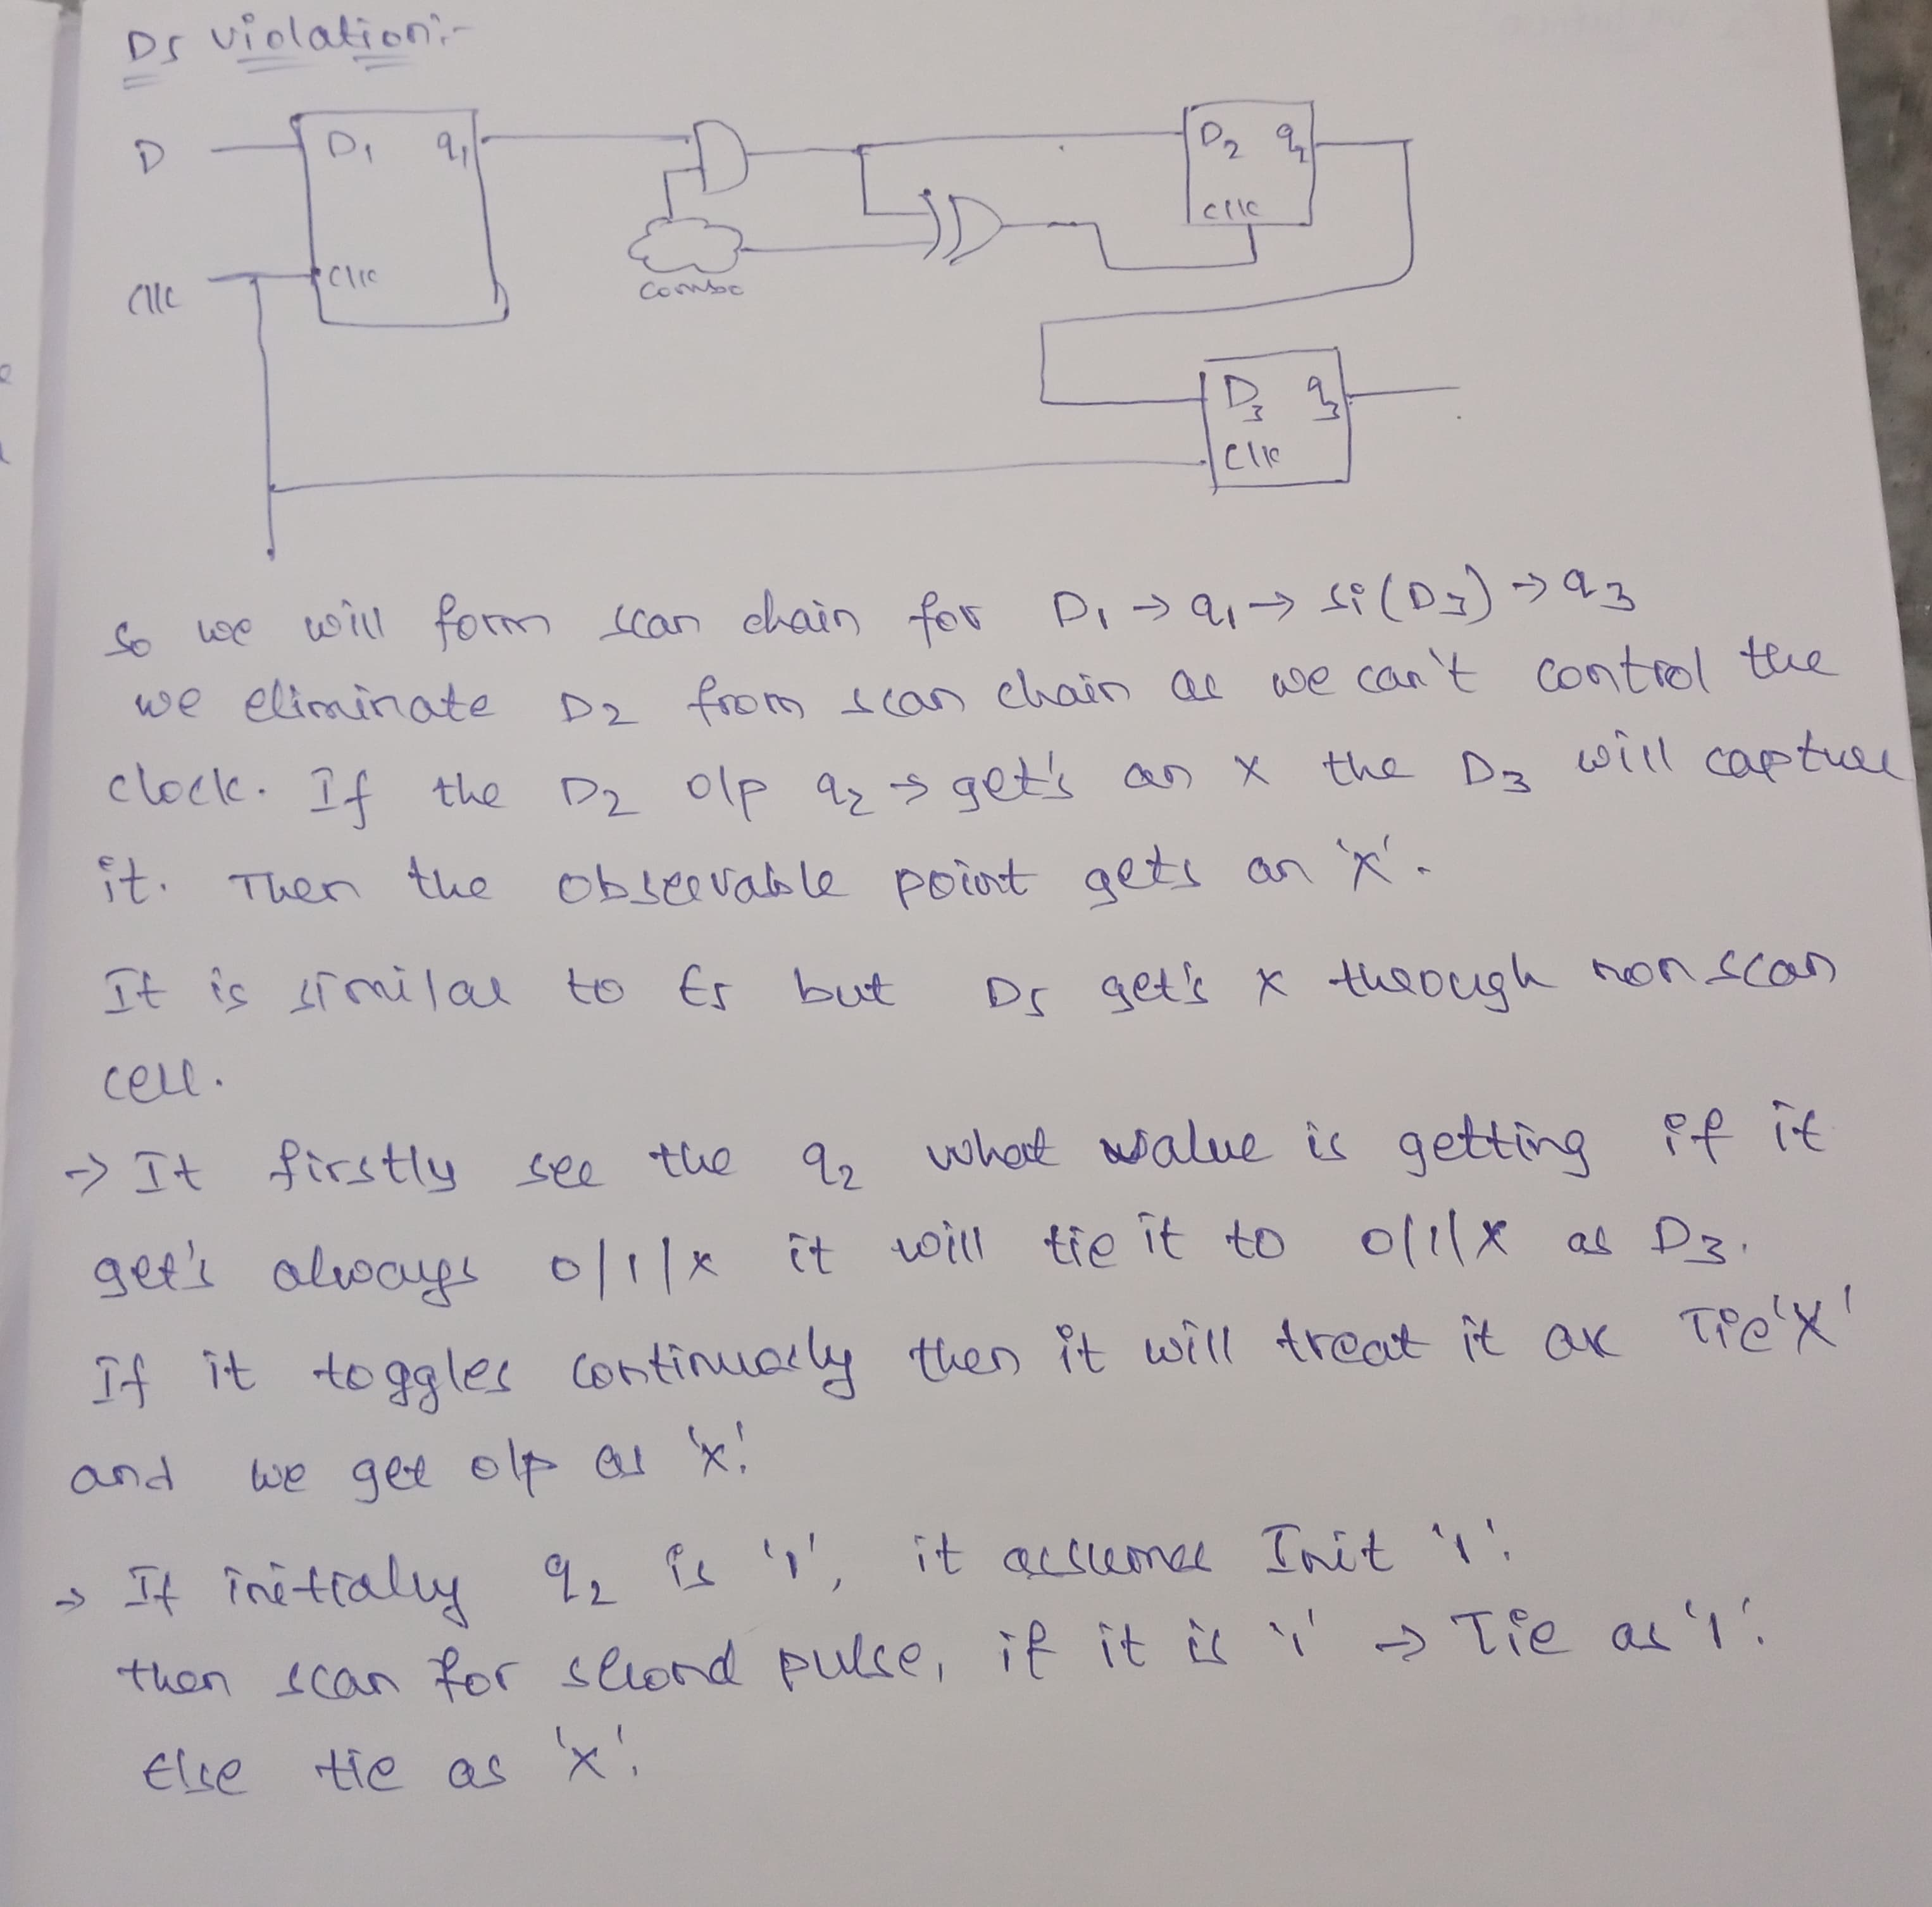 D5 violation:-
D
D1 q1
D2 q2
Clk
Clk
Clk
Combo
D3 q3
Clk
So we will form scan chain for D1 → q1 → si(D3) → q3
we eliminate D2 from scan chain as we can't control the
clock. If the D2 o/p q2 → get's an x the D3 will capture
it. Then the observable point gets an 'x'.
It is similar to E5 but D5 get's x through non scan
cell.
→ It firstly see the q2 what value is getting if it
get's always 0/1/x it will tie it to 0/1/x as D3.
If it toggles continuously then it will treat it as Tie 'X'
and we get o/p as 'x'.
→ If initially q2 is '1', it assumes Init '1'.
then scan for second pulse, if it is '1' → Tie as '1'.
Else tie as 'x'.